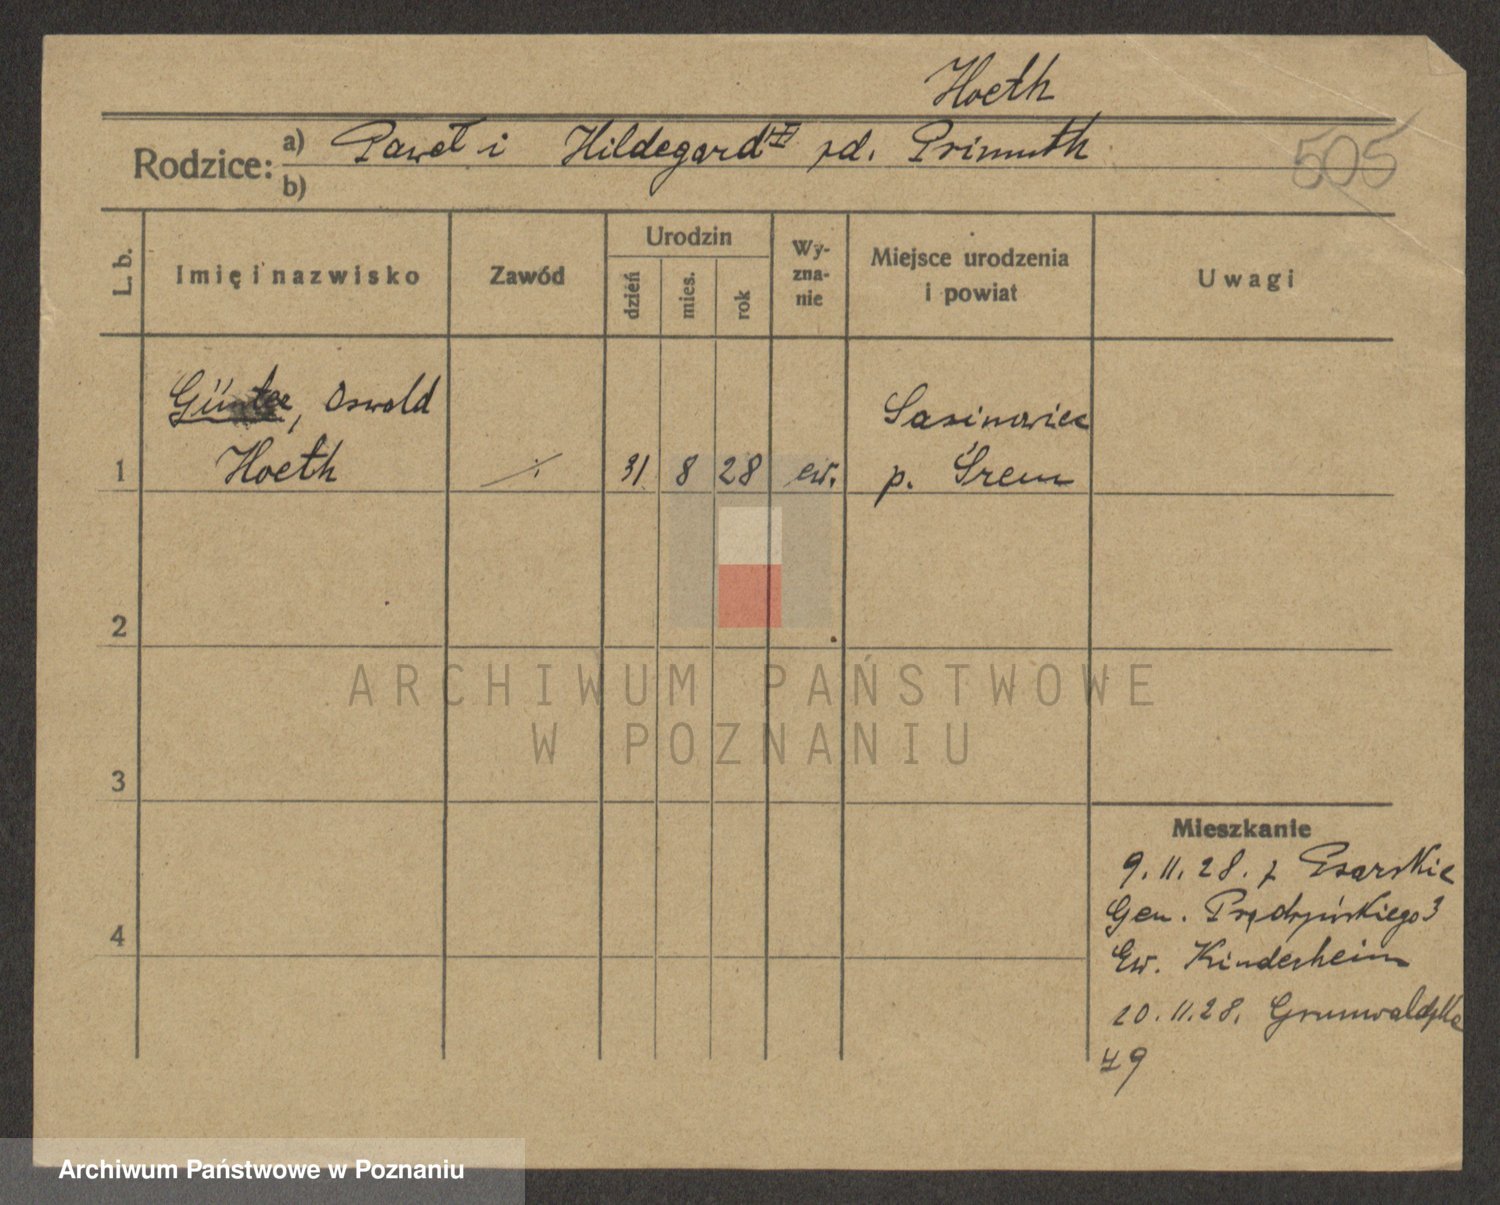 Hoeth
Rodzice: a) Paweł i Hildegard zd. Primuth
b)
505
L. b.
Imię i nazwisko
Zawód
Urodzin
dzień
mies.
rok
Wy-
zna-
nie
Miejsce urodzenia
i powiat
Uwagi
Günter, Oswald
Hoeth
1
31 8 28 ew.
Sasinowiec
p. Śrem
2
3
4
ARCHIWUM PAŃSTWOWE
W POZNANIU
Mieszkanie
9.11.28. z
Gen. Prądzyńskiego 3
Ew. Kinderheim
20.11.28. Grunwaldzka
49
Archiwum Państwowe w Poznaniu